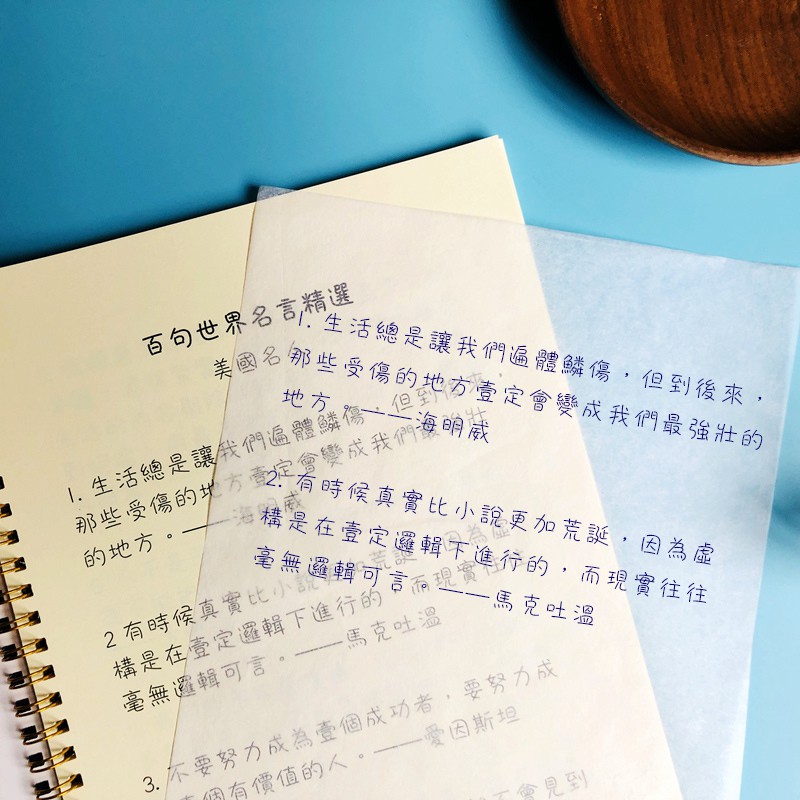 百句世界名言精選
美國名
1. 生活總是讓我們遍體鱗傷 但到後來，
那些受傷的地方壹定會變成我們最強壯
的地方。——海明威
2 有時候真實比小說 加荒誕 因為虛
構是在壹定邏輯下進行的 而現實往往
毫無邏輯可言。——馬克吐溫
3. 不要努力成為壹個成功者，要努力成
壹個有價值的人。——愛因斯坦
不會見到
1. 生活總是讓我們遍體鱗傷，但到後來，
那些受傷的地方壹定會變成我們最強壯的
地方。——海明威
2. 有時候真實比小說更加荒誕，因為虛
構是在壹定邏輯下進行的，而現實往往
毫無邏輯可言。——馬克吐溫